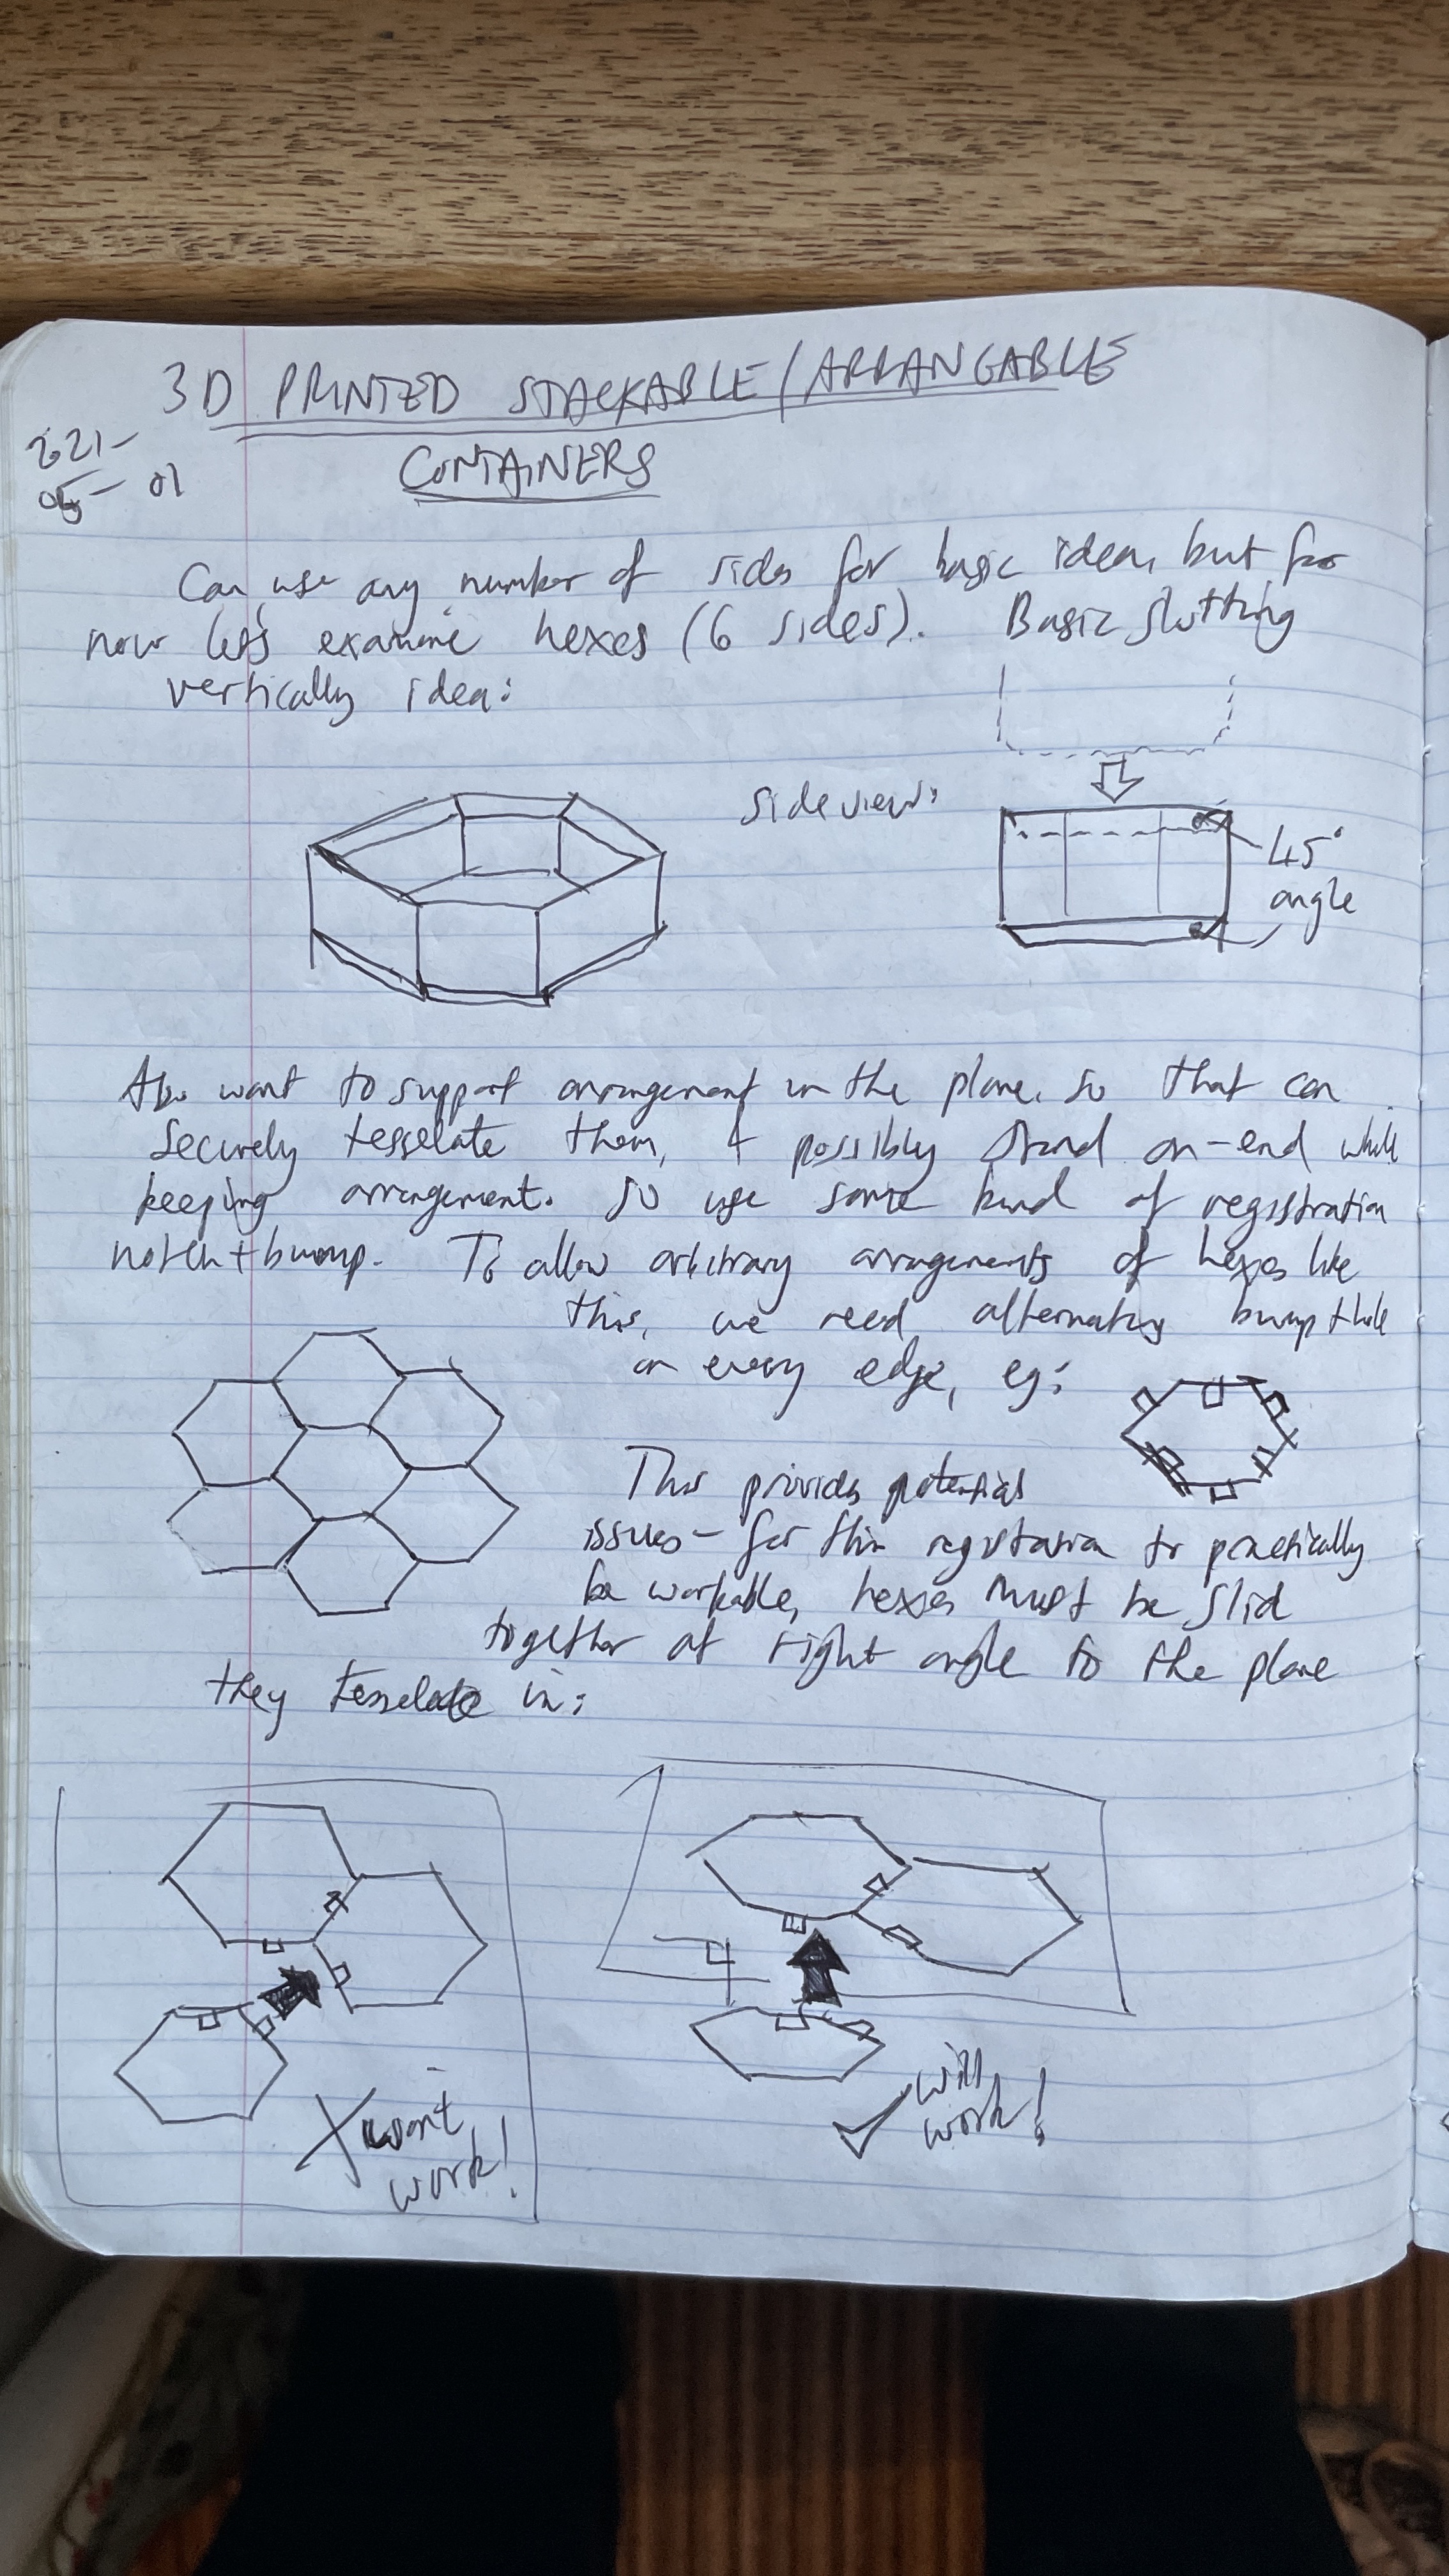 3D PRINTED STACKABLE/ARRANGABLE
CONTAINERS
2021-
05-01
Can use any number of sides for basic idea, but for
now let's examine hexes (6 sides). Basic slotting
vertically idea:
side view:
45°
angle
Also want to support arrangement in the plane, so that can
securely tesselate them, + possibly stand on-end while
keeping arrangement. So use some kind of registration
notch + bump. To allow arbitrary arrangements of hexes like
this, we need alternating bump + hole
on every edge, eg:
This provides potential
issues - for this registration to practically
be workable, hexes must be slid
together at right angle to the plane
they tesselate in:
won't
work!
will
work!